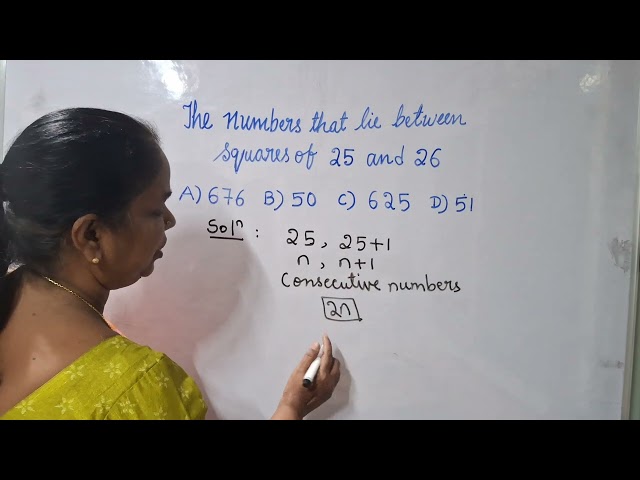 The numbers that lie between
squares of 25 and 26
A) 676 B) 50 C) 625 D) 51
Solⁿ : 25, 25+1
n, n+1
Consecutive numbers
2n